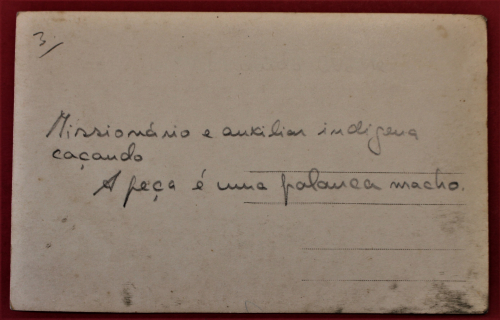 3)
Missionário e auxiliar indigena
caçando
A peça é uma palanca macho.